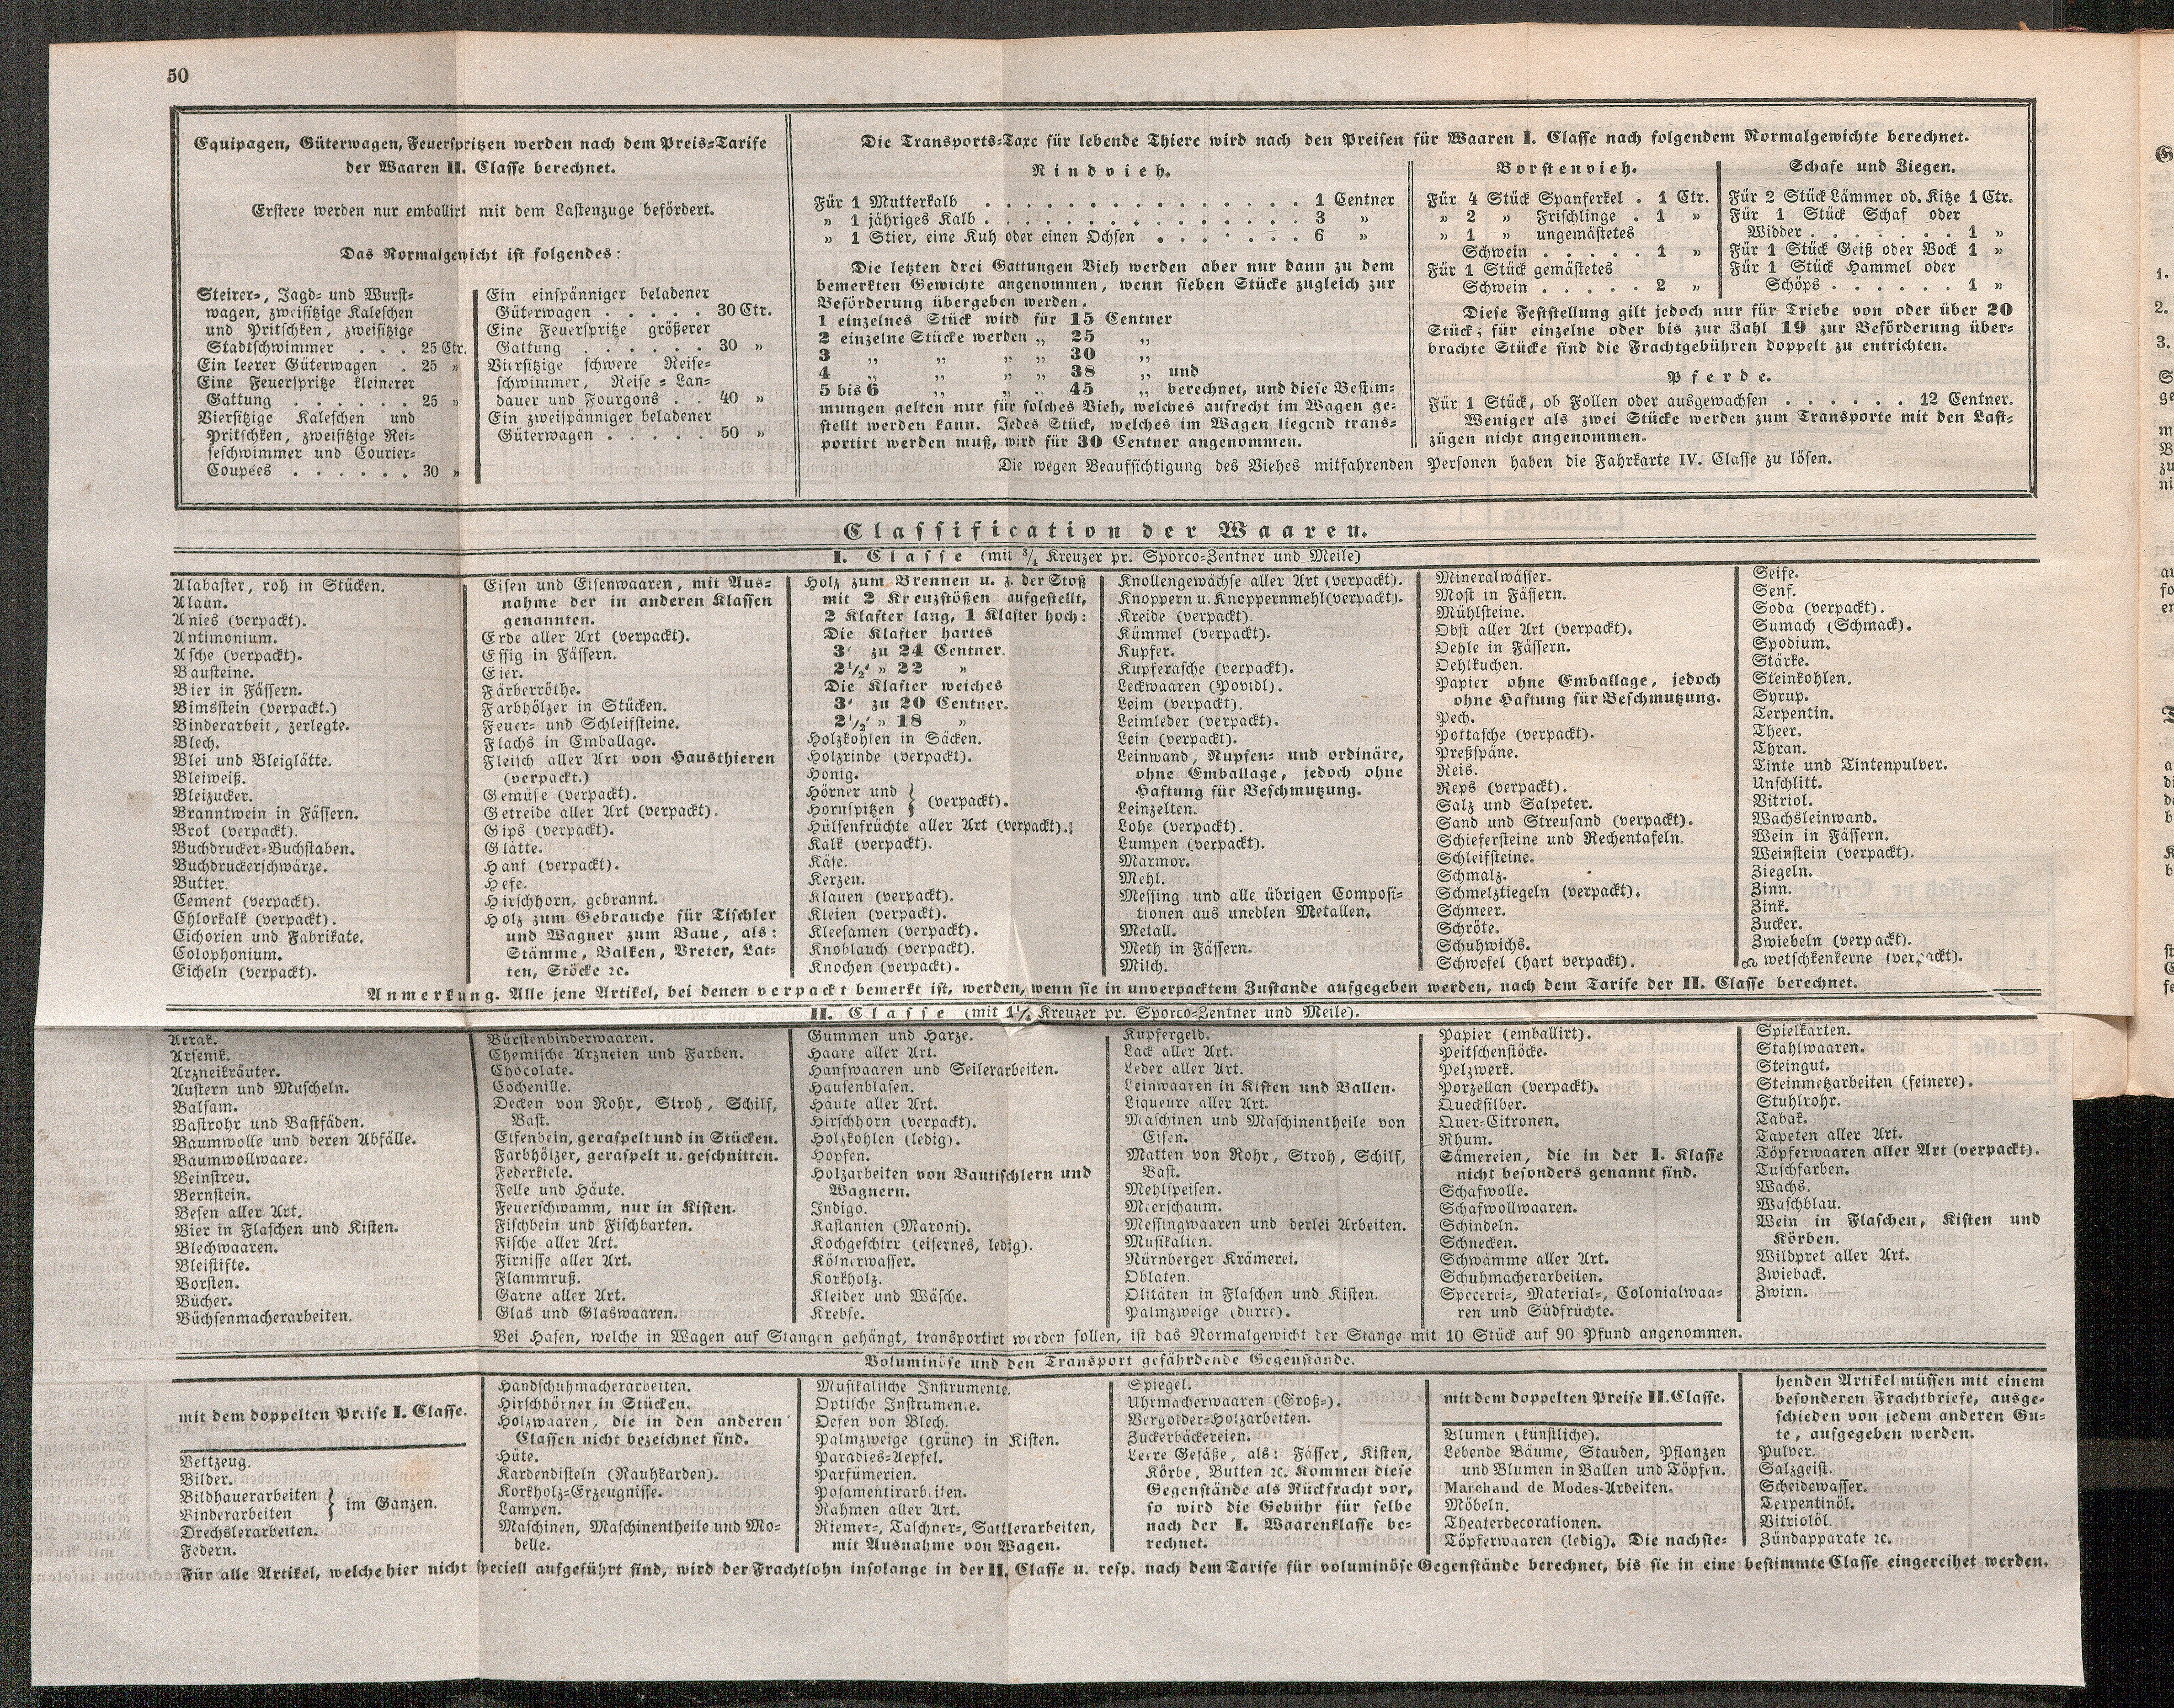 50
Equipagen, Güterwagen, Feuerspritzen werden nach dem Preis-Tarife
der Waaren II. Classe berechnet.
Erstere werden nur emballirt mit dem Lastenzuge befördert.
Das Normalgewicht ist folgendes:
Steirer-, Jagd- und Wurst-
wagen, zweisitzige Kaleschen
und Pritschken, zweisitzige
Stadtschwimmer . . . 25 Ctr.
Ein leerer Güterwagen . 25 »
Eine Feuerspritze kleinerer
Gattung . . . . . . 25 »
Viersitzige Kaleschen und
Pritschken, zweisitzige Rei-
seschwimmer und Courier-
Coupées . . . . . . 30 »
Ein einspänniger beladener
Güterwagen . . . . . 30 Ctr.
Eine Feuerspritze größerer
Gattung . . . . . . 30 »
Viersitzige schwere Reise-
schwimmer, Reise-Lan-
dauer und Fourgons . . 40 »
Ein zweispänniger beladener
Güterwagen . . . . . 50 »
Die Transports-Taxe für lebende Thiere wird nach den Preisen für Waaren I. Classe nach folgendem Normalgewichte berechnet.
Rindvieh.
Für 1 Mutterkalb . . . . . . . . . . . . . . . 1 Centner
» 1 jähriges Kalb . . . . . . . . . . . . . . 3 »
» 1 Stier, eine Kuh oder einen Ochsen . . . . . . . 6 »
Die letzten drei Gattungen Vieh werden aber nur dann zu dem
bemerkten Gewichte angenommen, wenn sieben Stücke zugleich zur
Beförderung übergeben werden,
1 einzelnes Stück wird für 15 Centner
2 einzelne Stücke werden „ 25 „
3 „ „ „ „ 30 „
4 „ „ „ „ 38 „ und
5 bis 6 „ „ „ 45 „ berechnet, und diese Bestim-
mungen gelten nur für solches Vieh, welches aufrecht im Wagen ge-
stellt werden kann. Jedes Stück, welches im Wagen liegend trans-
portirt werden muß, wird für 30 Centner angenommen.
Borstenvieh.
Für 4 Stück Spanferkel . 1 Ctr.
» 2 » Frischlinge . 1 »
» 1 » ungemästetes
Schwein . . . . . 1 »
Für 1 Stück gemästetes
Schwein . . . . . 2 »
Schafe und Ziegen.
Für 2 Stück Lämmer od. Kitze 1 Ctr.
Für 1 Stück Schaf oder
Widder . . . . . . . 1 »
Für 1 Stück Geiß oder Bock 1 »
Für 1 Stück Hammel oder
Schöps . . . . . . 1 »
Diese Feststellung gilt jedoch nur für Triebe von oder über 20
Stück; für einzelne oder bis zur Zahl 19 zur Beförderung über-
brachte Stücke sind die Frachtgebühren doppelt zu entrichten.
Pferde.
Für 1 Stück, ob Follen oder ausgewachsen . . . . . . 12 Centner.
Weniger als zwei Stücke werden zum Transporte mit den Last-
zügen nicht angenommen.
Die wegen Beaufsichtigung des Viehes mitfahrenden Personen haben die Fahrkarte IV. Classe zu lösen.
Classification der Waaren.
I. Classe (mit 3/4 Kreuzer pr. Sporco-Zentner und Meile)
Alabaster, roh in Stücken.
Alaun.
Anies (verpackt).
Antimonium.
Asche (verpackt).
Bausteine.
Bier in Fässern.
Bimsstein (verpackt.)
Binderarbeit, zerlegte.
Blech.
Blei und Bleiglätte.
Bleiweiß.
Bleizucker.
Branntwein in Fässern.
Brot (verpackt).
Buchdrucker-Buchstaben.
Buchdruckerschwärze.
Butter.
Cement (verpackt).
Chlorkalk (verpackt).
Cichorien und Fabrikate.
Colophonium.
Eicheln (verpackt).
Eisen und Eisenwaaren, mit Aus-
nahme der in anderen Klassen
genannten.
Erde aller Art (verpackt).
Essig in Fässern.
Eier.
Färberröthe.
Farbhölzer in Stücken.
Feuer- und Schleifsteine.
Flachs in Emballage.
Fleisch aller Art von Hausthieren
(verpackt.)
Gemüse (verpackt).
Getreide aller Art (verpackt).
Gips (verpackt).
Glätte.
Hanf (verpackt).
Hefe.
Hirschhorn, gebrannt.
Holz zum Gebrauche für Tischler
und Wagner zum Baue, als:
Stämme, Balken, Breter, Lat-
ten, Stöcke ꝛc.
Holz zum Brennen u. z. der Stoß
mit 2 Kreuzstößen aufgestellt,
2 Klafter lang, 1 Klafter hoch:
Die Klafter hartes
3' zu 24 Centner.
2 1/2' » 22 »
Die Klafter weiches
3' zu 20 Centner.
2 1/2' » 18 »
Holzkohlen in Säcken.
Holzrinde (verpackt).
Honig.
Hörner und
Hornspitzen } (verpackt).
Hülsenfrüchte aller Art (verpackt).
Kalk (verpackt).
Käse.
Kerzen.
Klauen (verpackt).
Kleien (verpackt).
Kleesamen (verpackt).
Knoblauch (verpackt).
Knochen (verpackt).
Knollengewächse aller Art (verpackt).
Knoppern u. Knoppernmehl (verpackt).
Kreide (verpackt).
Kümmel (verpackt).
Kupfer.
Kupferasche (verpackt).
Leckwaaren (Povidl).
Leim (verpackt).
Leimleder (verpackt).
Lein (verpackt).
Leinwand, Rupfen- und ordinäre,
ohne Emballage, jedoch ohne
Haftung für Beschmutzung.
Leinzelten.
Lohe (verpackt).
Lumpen (verpackt).
Marmor.
Mehl.
Messing und alle übrigen Composi-
tionen aus unedlen Metallen.
Metall.
Meth in Fässern.
Milch.
Mineralwässer.
Most in Fässern.
Mühlsteine.
Obst aller Art (verpackt).
Oehle in Fässern.
Oehlkuchen.
Papier ohne Emballage, jedoch
ohne Haftung für Beschmutzung.
Pech.
Pottasche (verpackt).
Preßspäne.
Reis.
Reps (verpackt).
Salz und Salpeter.
Sand und Streusand (verpackt).
Schiefersteine und Rechentafeln.
Schleifsteine.
Schmalz.
Schmelztiegeln (verpackt).
Schmeer.
Schröte.
Schuhwichs.
Schwefel (hart verpackt).
Seife.
Senf.
Soda (verpackt).
Sumach (Schmack).
Spodium.
Stärke.
Steinkohlen.
Syrup.
Terpentin.
Theer.
Thran.
Tinte und Tintenpulver.
Unschlitt.
Vitriol.
Wachsleinwand.
Wein in Fässern.
Weinstein (verpackt).
Ziegeln.
Zinn.
Zink.
Zucker.
Zwiebeln (verpackt).
Zwetschkenkerne (verpackt).
Anmerkung. Alle jene Artikel, bei denen verpackt bemerkt ist, werden, wenn sie in unverpacktem Zustande aufgegeben werden, nach dem Tarife der II. Classe berechnet.
II. Classe (mit 1 1/4 Kreuzer pr. Sporco-Zentner und Meile).
Arrak.
Arsenik.
Arzneikräuter.
Austern und Muscheln.
Balsam.
Bastrohr und Bastfäden.
Baumwolle und deren Abfälle.
Baumwollwaare.
Beinstreu.
Bernstein.
Besen aller Art.
Bier in Flaschen und Kisten.
Blechwaaren.
Bleistifte.
Borsten.
Bücher.
Büchsenmacherarbeiten.
Bürstenbinderwaaren.
Chemische Arzneien und Farben.
Chocolate.
Cochenille.
Decken von Rohr, Stroh, Schilf,
Bast.
Elfenbein, geraspelt und in Stücken.
Farbhölzer, geraspelt u. geschnitten.
Federkiele.
Felle und Häute.
Feuerschwamm, nur in Kisten.
Fischbein und Fischbarten.
Fische aller Art.
Firnisse aller Art.
Flammruß.
Garne aller Art.
Glas und Glaswaaren.
Gummen und Harze.
Haare aller Art.
Hanfwaaren und Seilerarbeiten.
Hausenblasen.
Häute aller Art.
Hirschhorn (verpackt).
Holzkohlen (ledig).
Hopfen.
Holzarbeiten von Bautischlern und
Wagnern.
Indigo.
Kastanien (Maroni).
Kochgeschirr (eisernes, ledig).
Kölnerwasser.
Korkholz.
Kleider und Wäsche.
Krebse.
Kupfergeld.
Lack aller Art.
Leder aller Art.
Leinwaaren in Kisten und Ballen.
Liqueure aller Art.
Maschinen und Maschinentheile von
Eisen.
Matten von Rohr, Stroh, Schilf,
Bast.
Mehlspeisen.
Meerschaum.
Messingwaaren und derlei Arbeiten.
Musikalien.
Nürnberger Krämerei.
Oblaten.
Olitäten in Flaschen und Kisten.
Palmzweige (durre).
Papier (emballirt).
Peitschenstöcke.
Pelzwerk.
Porzellan (verpackt).
Quecksilber.
Quer-Citronen.
Rhum.
Sämereien, die in der I. Klasse
nicht besonders genannt sind.
Schafwolle.
Schafwollwaaren.
Schindeln.
Schnecken.
Schwämme aller Art.
Schuhmacherarbeiten.
Specerei-, Material-, Colonialwaa-
ren und Südfrüchte.
Spielkarten.
Stahlwaaren.
Steingut.
Steinmetzarbeiten (feinere).
Stuhlrohr.
Tabak.
Tapeten aller Art.
Töpferwaaren aller Art (verpackt).
Tuschfarben.
Wachs.
Waschblau.
Wein in Flaschen, Kisten und
Körben.
Wildpret aller Art.
Zwieback.
Zwirn.
Bei Hasen, welche in Wagen auf Stangen gehängt, transportirt werden sollen, ist das Normalgewicht der Stange mit 10 Stück auf 90 Pfund angenommen.
Voluminöse und den Transport gefährdende Gegenstände.
mit dem doppelten Preise I. Classe.
Bettzeug.
Bilder.
Bildhauerarbeiten
Binderarbeiten } im Ganzen.
Drechslerarbeiten.
Federn.
Handschuhmacherarbeiten.
Hirschhörner in Stücken.
Holzwaaren, die in den anderen
Classen nicht bezeichnet sind.
Hüte.
Kardendisteln (Rauhkarden).
Korkholz-Erzeugnisse.
Lampen.
Maschinen, Maschinentheile und Mo-
delle.
Musikalische Instrumente.
Optische Instrumente.
Oefen von Blech.
Palmzweige (grüne) in Kisten.
Paradies-Aepfel.
Parfümerien.
Posamentirarbeiten.
Rahmen aller Art.
Riemer-, Taschner-, Sattlerarbeiten,
mit Ausnahme von Wagen.
Spiegel.
Uhrmacherwaaren (Groß-).
Vergolder-Holzarbeiten.
Zuckerbäckereien.
Leere Gefäße, als: Fässer, Kisten,
Körbe, Butten ꝛc. Kommen diese
Gegenstände als Rückfracht vor,
so wird die Gebühr für selbe
nach der I. Waarenklasse be-
rechnet.
mit dem doppelten Preise II. Classe.
Blumen (künstliche).
Lebende Bäume, Stauden, Pflanzen
und Blumen in Ballen und Töpfen.
Marchand de Modes-Arbeiten.
Möbeln.
Theaterdecorationen.
Töpferwaaren (ledig). Die nachste-
henden Artikel müssen mit einem
besonderen Frachtbriefe, ausge-
schieden von jedem anderen Gu-
te, aufgegeben werden.
Pulver.
Salzgeist.
Scheidewasser.
Terpentinöl.
Vitriolöl.
Zündapparate ꝛc.
Für alle Artikel, welche hier nicht speciell aufgeführt sind, wird der Frachtlohn insolange in der II. Classe u. resp. nach dem Tarife für voluminöse Gegenstände berechnet, bis sie in eine bestimmte Classe eingereihet werden.